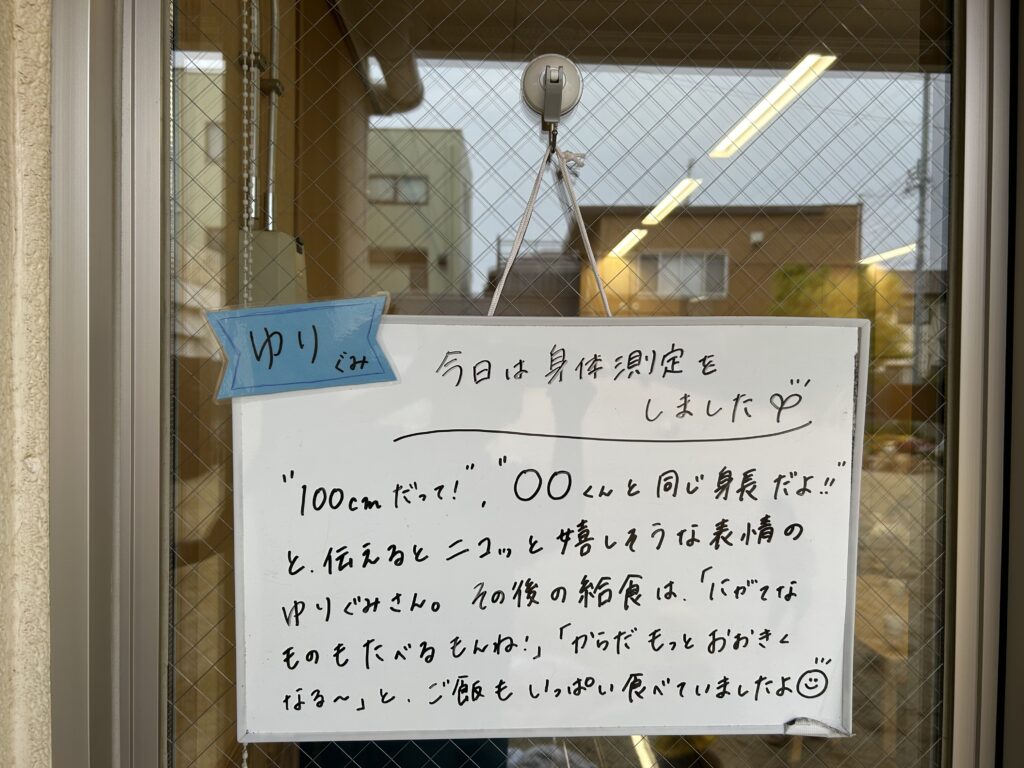 ゆりぐみ
今日は身体測定を
しました
"100cmだって!", "○○くんと同じ身長だよ!!"
と、伝えるとニコッと嬉しそうな表情の
ゆりぐみさん。その後の給食は、「にがてな
ものもたべるもんね!」「からだもっとおおきく
なる〜」と、ご飯もいっぱい食べていましたよ